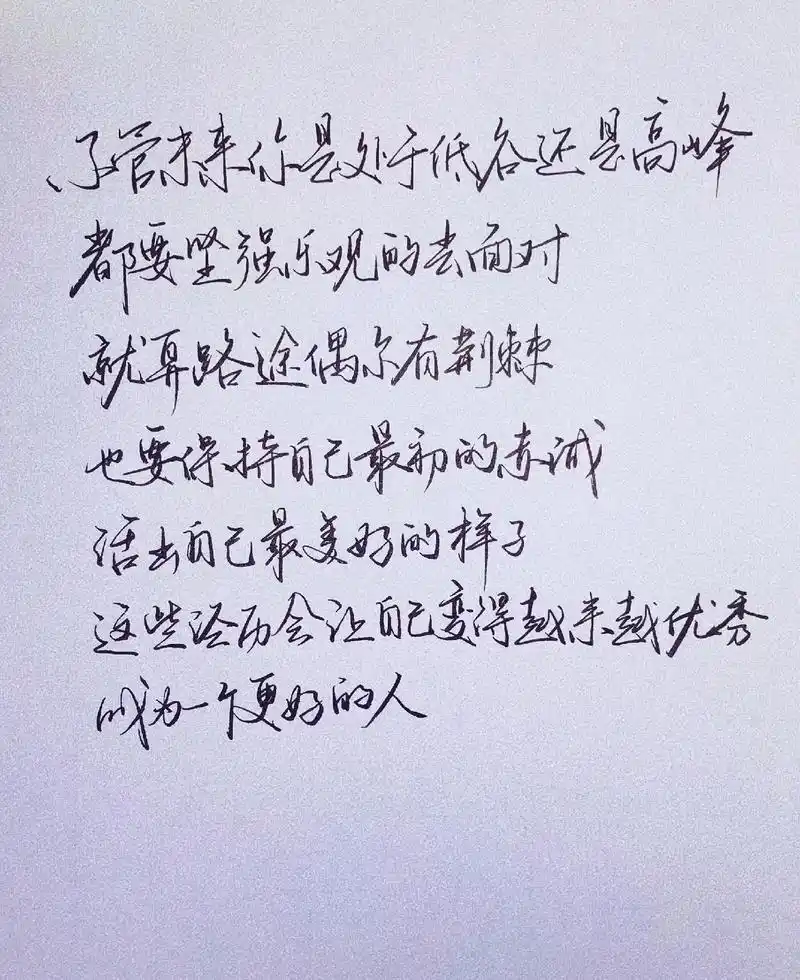 不管未来你是处于低谷还是高峰
都要坚强乐观的去面对
就算路途偶尔有荆棘
也要保持自己最初的赤诚
活出自己最美好的样子
这些经历会让自己变得越来越优秀
成为一个更好的人